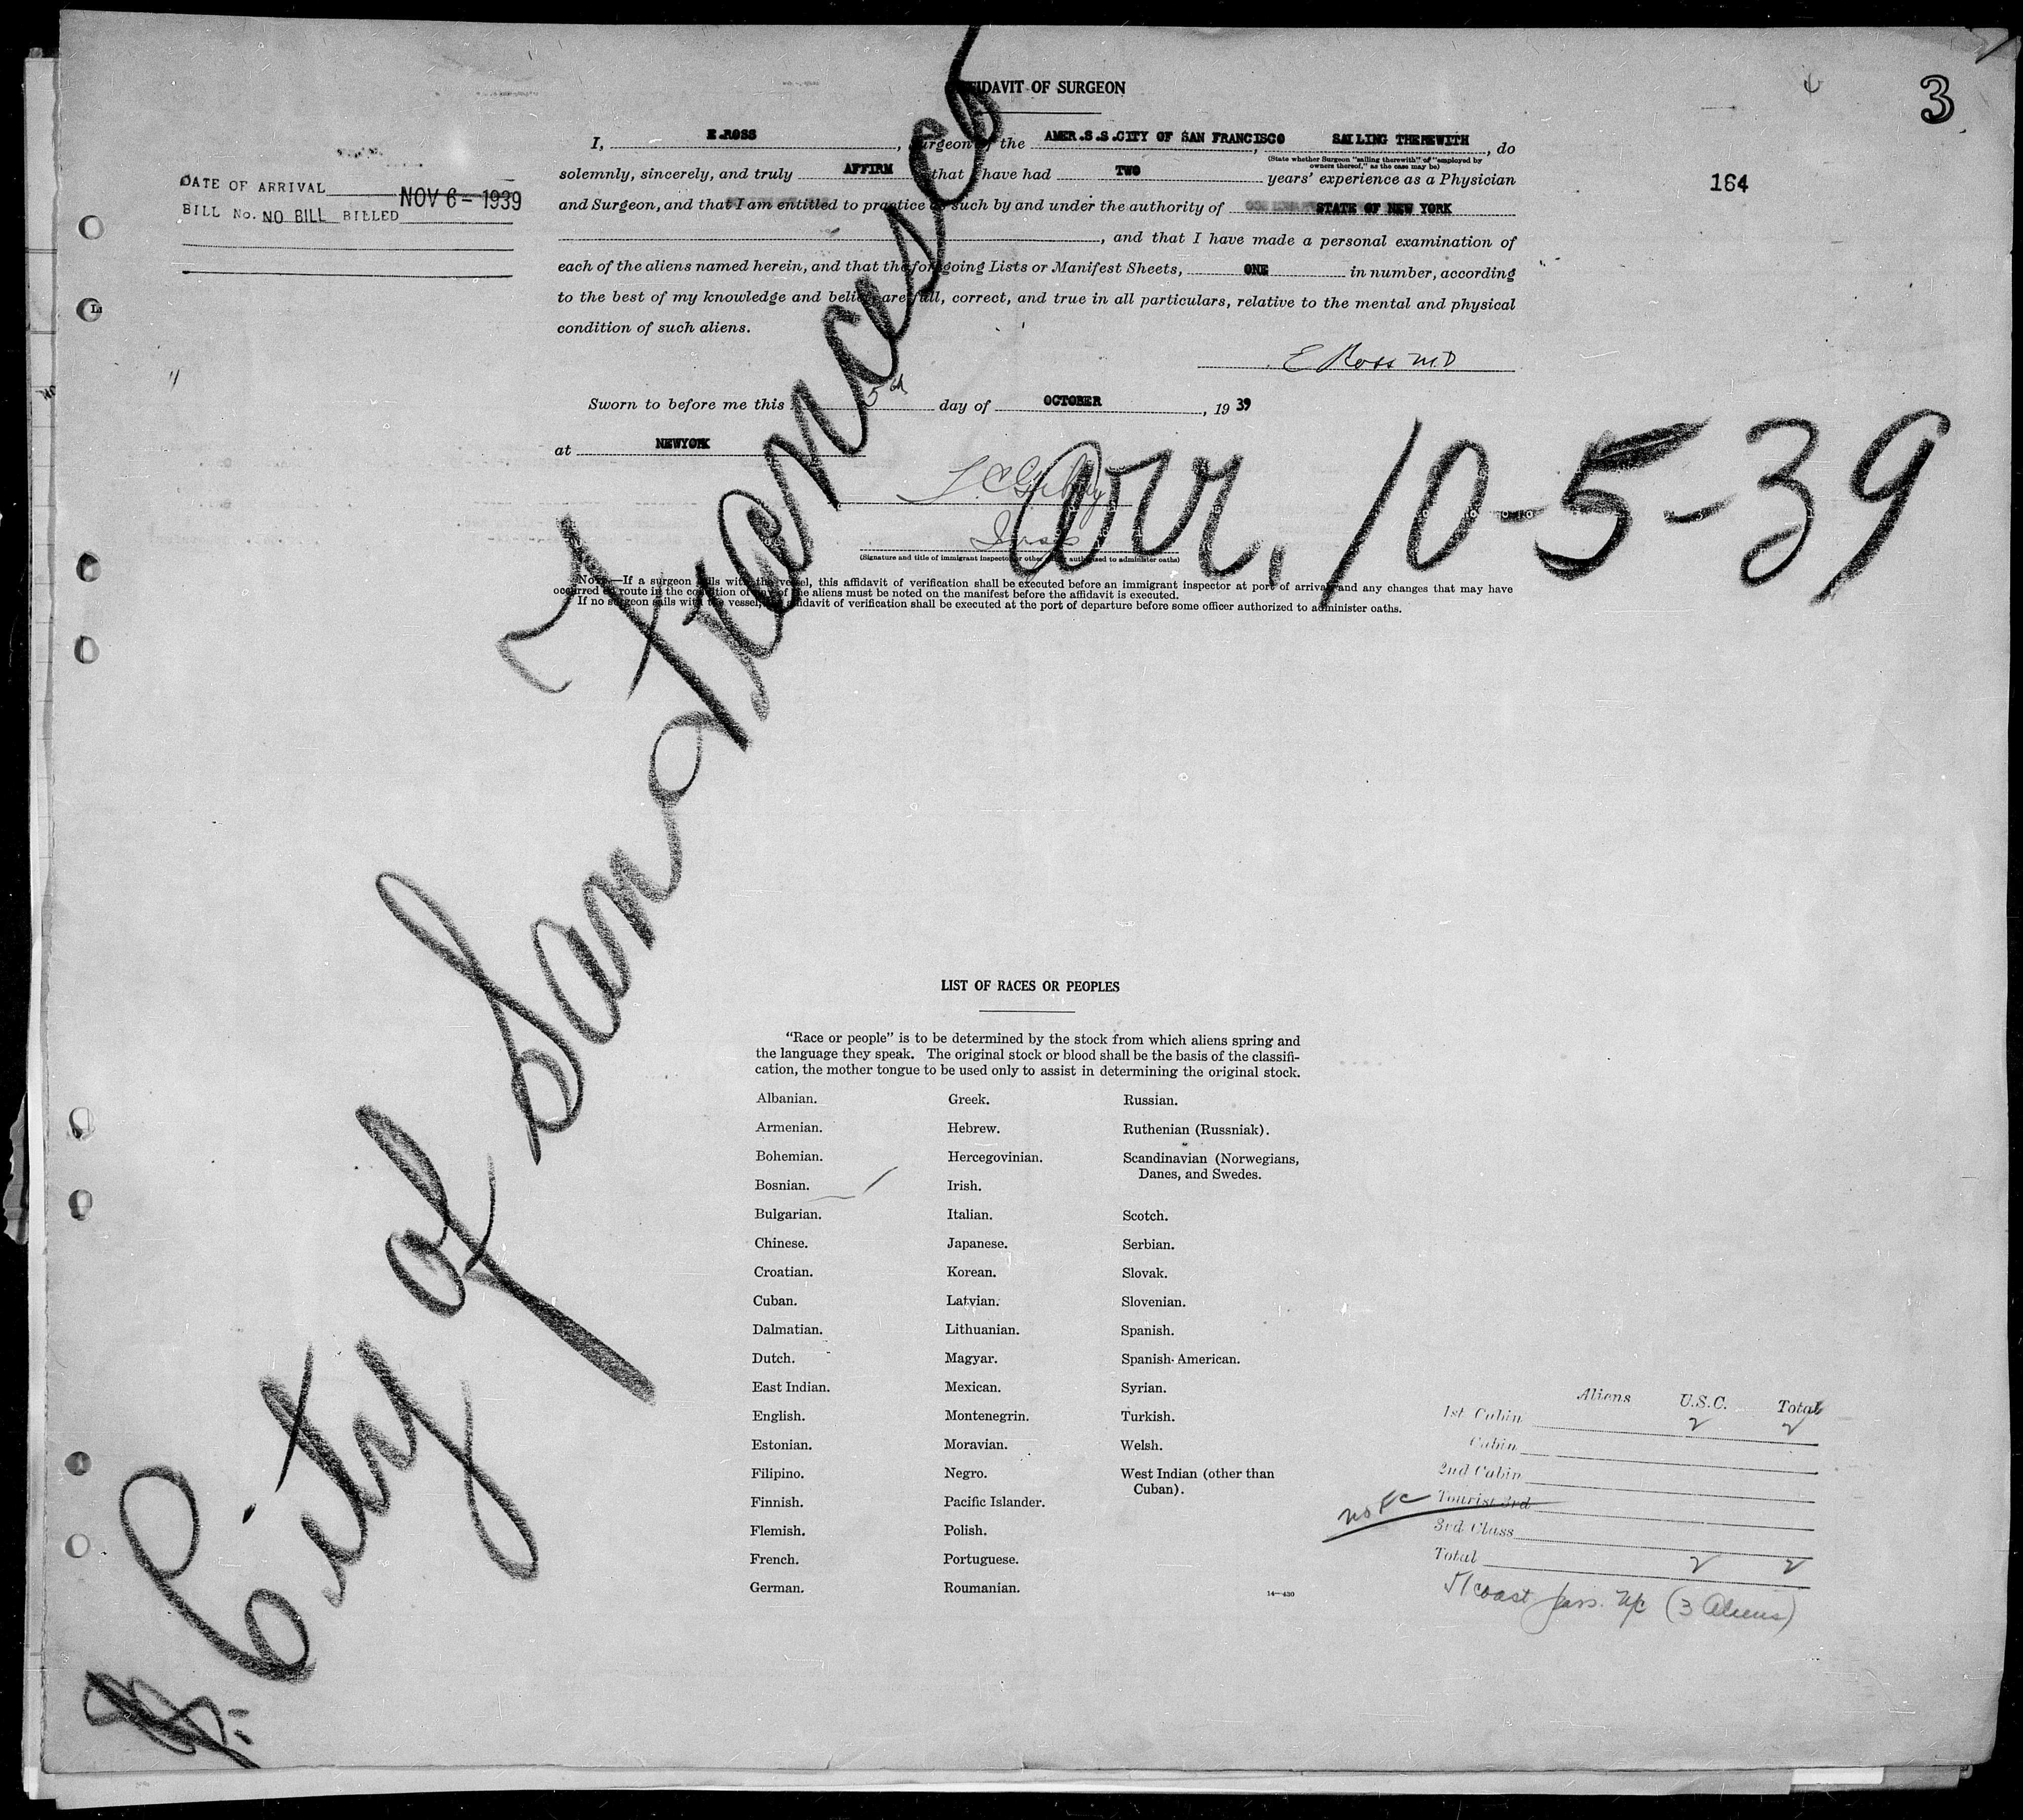 3
AFFIDAVIT OF SURGEON
I, E.ROSS, Surgeon of the AMER.S.S.CITY OF SAN FRANCISCO, SAILING THEREWITH, do
(State whether Surgeon "sailing therewith" or "employed by
owners thereof," as the case may be)
solemnly, sincerely, and truly AFFIRM that I have had TWO years' experience as a Physician
164
DATE OF ARRIVAL NOV 6 - 1939
BILL No. NO BILL BILLED
and Surgeon, and that I am entitled to practice as such by and under the authority of STATE OF NEW YORK
, and that I have made a personal examination of
each of the aliens named herein, and that the foregoing Lists or Manifest Sheets, ONE in number, according
to the best of my knowledge and belief, are full, correct, and true in all particulars, relative to the mental and physical
condition of such aliens.
E Ross M.D
Sworn to before me this 5th day of OCTOBER, 19 39
at NEWYORK
arr. 10-5-39
(Signature and title of immigrant inspector or other officer authorized to administer oaths)
NOTE.—If a surgeon sails with the vessel, this affidavit of verification shall be executed before an immigrant inspector at port of arrival and any changes that may have
occurred en route in the condition of any of the aliens must be noted on the manifest before the affidavit is executed.
If no surgeon sails with the vessel, the affidavit of verification shall be executed at the port of departure before some officer authorized to administer oaths.
City of San Francisco
LIST OF RACES OR PEOPLES
"Race or people" is to be determined by the stock from which aliens spring and
the language they speak. The original stock or blood shall be the basis of the classifi-
cation, the mother tongue to be used only to assist in determining the original stock.
Albanian.
Armenian.
Bohemian.
Bosnian.
Bulgarian.
Chinese.
Croatian.
Cuban.
Dalmatian.
Dutch.
East Indian.
English.
Estonian.
Filipino.
Finnish.
Flemish.
French.
German.
Greek.
Hebrew.
Hercegovinian.
Irish.
Italian.
Japanese.
Korean.
Latvian.
Lithuanian.
Magyar.
Mexican.
Montenegrin.
Moravian.
Negro.
Pacific Islander.
Polish.
Portuguese.
Roumanian.
Russian.
Ruthenian (Russniak).
Scandinavian (Norwegians,
Danes, and Swedes.
Scotch.
Serbian.
Slovak.
Slovenian.
Spanish.
Spanish-American.
Syrian.
Turkish.
Welsh.
West Indian (other than
Cuban).
14—430
Aliens U.S.C. Total
1st Cabin 2 2
Cabin
2nd Cabin
Tourist 3rd
3rd Class
Total 2 2
51 coast pass. (3 Aliens)